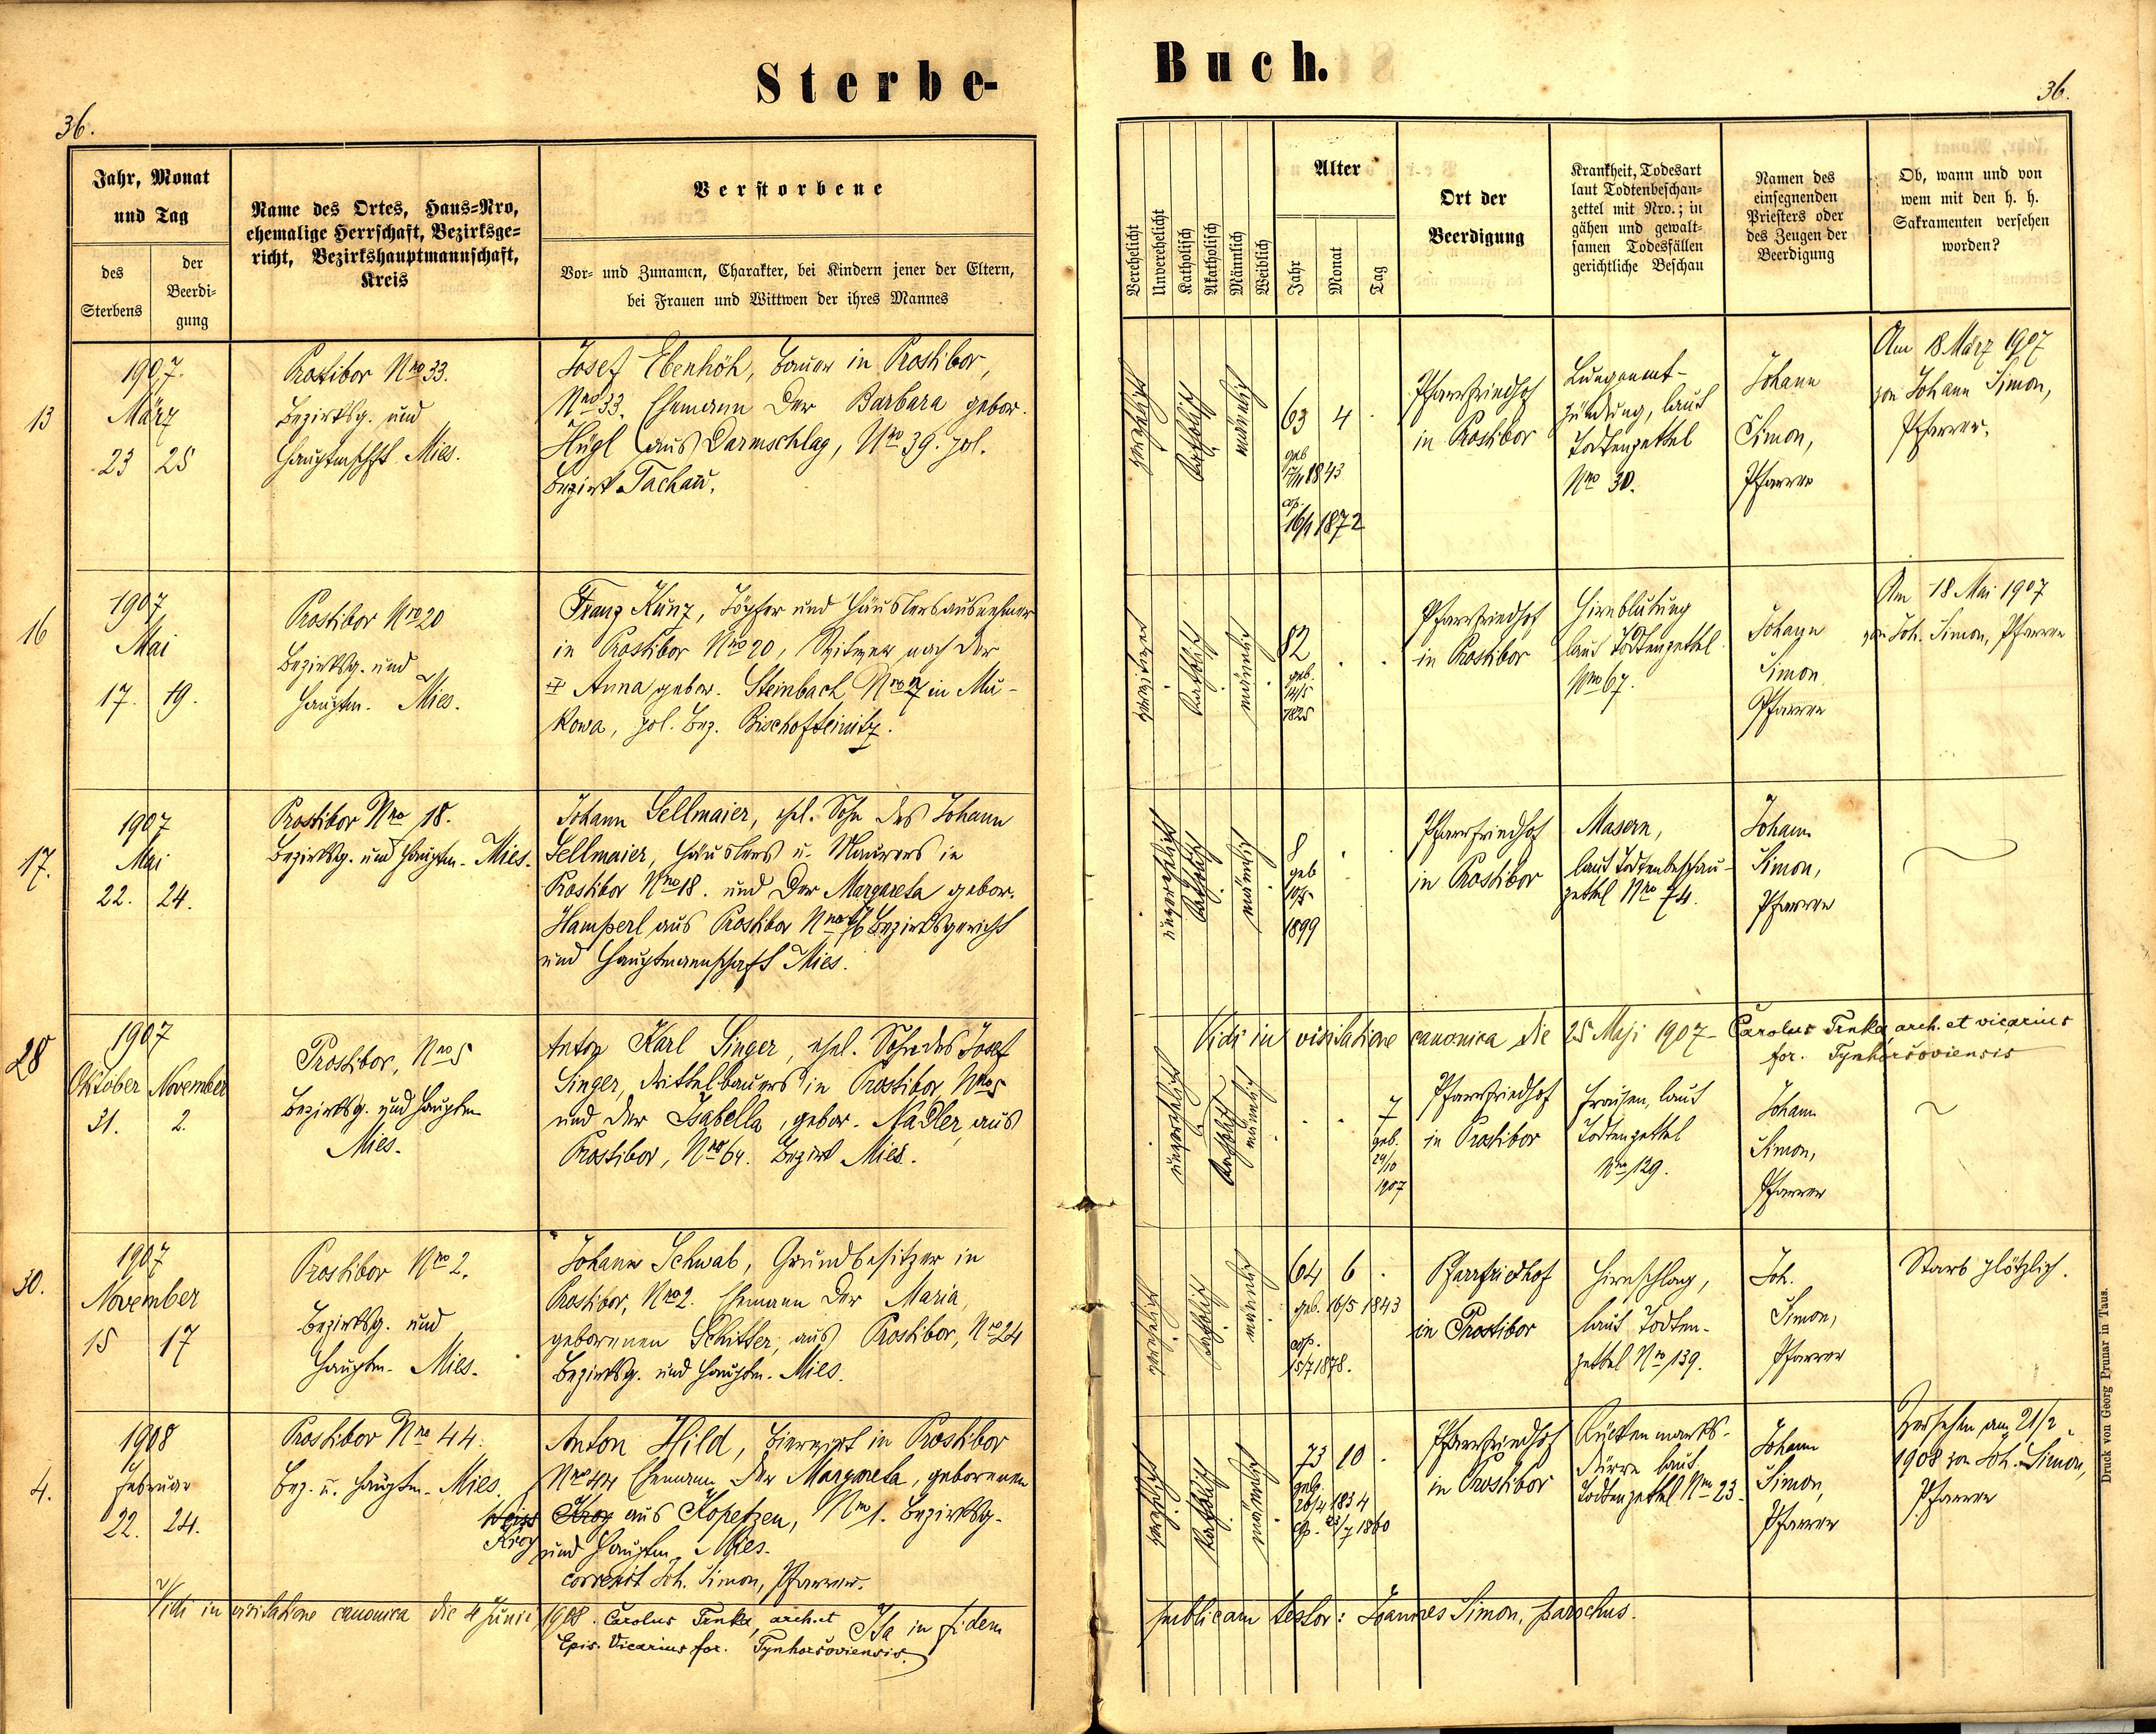 Sterbe-
Buch.
36.
36.
Jahr, Monat
und Tag
des
Sterbens
der
Beerdi-
gung
Name des Ortes, Haus-Nro,
ehemalige Herrschaft, Bezirksge-
richt, Bezirkshauptmannschaft,
Kreis
Verstorbene
Vor- und Zunamen, Charakter, bei Kindern jener der Eltern,
bei Frauen und Wittwen der ihres Mannes
Verehelicht
Unverehelicht
Katholisch
Akatholisch
Männlich
Weiblich
Alter
Jahr
Monat
Tag
Ort der
Beerdigung
Krankheit, Todesart
laut Todtenbeschau-
zettel mit Nro.; in
gähen und gewalt-
samen Todesfällen
gerichtliche Beschau
Namen des
einsegnenden
Priesters oder
des Zeugen der
Beerdigung
Ob, wann und von
wem mit den h. h.
Sakramenten versehen
worden?
13
1907.
März
23 25
Prostibor Nro 33.
Bezirksg. und
Hauptmschft. Mies.
Josef Ebenhöh, Bauer in Prostibor,
Nro 33. Ehemann der Barbara gebor.
Hügl aus Darmschlag, Nro 39. pol.
Bezirk Tachau.
verehelicht
katholisch
männlich
63 4 .
geb
17/11 1843
cop.
16/4 1872
Pfarrfriedhof
in Prostibor
Lungenent-
zündung, laut
Todtenzettel
Nro 30.
Johann
Simon,
Pfarrer
Am 18 März 1907
von Johann Simon,
Pfarrer.
16
1907
Mai
17. 19.
Prostibor Nro 20
Bezirksg. und
Hauptm. Mies.
Franz Kunz, Töpfer und Häuslersausnehmer
in Prostibor Nro 20, Witwer nach der
Anna gebor. Steinbach Nro 27 in Mu-
kowa, pol. Bez. Bischofteinitz.
verwitwet
katholisch
männlich
82 . .
geb.
14/5
1825
Pfarrfriedhof
in Prostibor
Hirnblutung
laut Todtenzettel
Nro 67.
Johann
Simon
Pfarrer
Am 18 Mai 1907
von Joh. Simon, Pfarrer
17.
1907
Mai
22. 24.
Prostibor Nro 18.
Bezirksg. und Hauptm. Mies.
Johann Sellmaier, ehel. Sohn des Johann
Sellmaier, Häuslers u. Maurers in
Prostibor Nro 18. und der Margareta gebor.
Hamperl aus Prostibor Nro 76 Bezirksgericht
und Hauptmannschaft Mies.
unverehelicht
katholisch
männlich
8 . .
geb
10/5
1899
Pfarrfriedhof
in Prostibor
Masern,
laut Todtenbeschau-
zettel Nro 74.
Johann
Simon,
Pfarrer
Vidi in visitatione canonica die 25 Maji 1907 - Carolus Trnka, arch. et vicarius
for. Tynhoršoviensis
28
1907
Oktober November
31. 2.
Prostibor, Nro 5
Bezirksg. und Hauptm
Mies.
Anton Karl Singer, ehel. Sohn des Josef
Singer, Drittelbauers in Prostibor, Nro 5
und der Isabella, gebor. Nadler, aus
Prostibor, Nro 64. Bezirk Mies.
unverehelicht
katholisch
männlich
. . 7
geb.
24/10
1907
Pfarrfriedhof
in Prostibor
Fraisen, laut
Todtenzettel
Nro 129.
Johann
Simon,
Pfarrer
30.
1907
November
15 17
Prostibor Nro 2.
Bezirksg. und
Hauptm. Mies.
Johann Schwab, Grundbesitzer in
Prostibor, Nro 2. Ehemann der Maria,
geborenen Schitter, aus Prostibor, Nro 24
Bezirksg. und Hauptm. Mies.
verehelicht
katholisch
männlich
64 6 .
geb. 16/5 1843
cop.
15/7 1878.
Pfarrfriedhof
in Prostibor
Hirnschlag,
laut Todten-
zettel Nro 139.
Joh.
Simon,
Pfarrer
Starb plötzlich.
4.
1908
Februar
22. 24.
Prostibor Nro 44.
Bez. u. Hauptm. Mies.
Anton Hild, Bierwirt in Prostibor
Nro 44 Ehemann der Margareta, geborenen
Weiss Krog aus Kopetzen, Nro 1. Bezirksg.
Krog und Hauptm. Mies.
correxit Joh. Simon, Pfarrer.
verehelicht
katholisch
männlich
73 10 .
geb.
20/4 1834
cop. 23/7 1860
Pfarrfriedhof
in Prostibor
Rückenmarks-
dürre laut
Todtenzettel Nro 23.
Johann
Simon,
Pfarrer
Versehen am 21/2
1908 von Joh. Simon,
Pfarrer
Vidi in visitatione canonica die 4 Junii 1908. Carolus Trnka, arch. et
Epis. Vicarius for. Tynhoršoviensis.
Ita in fidem
publicam testor: Joannes Simon, parochus.
Druck von Georg Prunar in Taus.